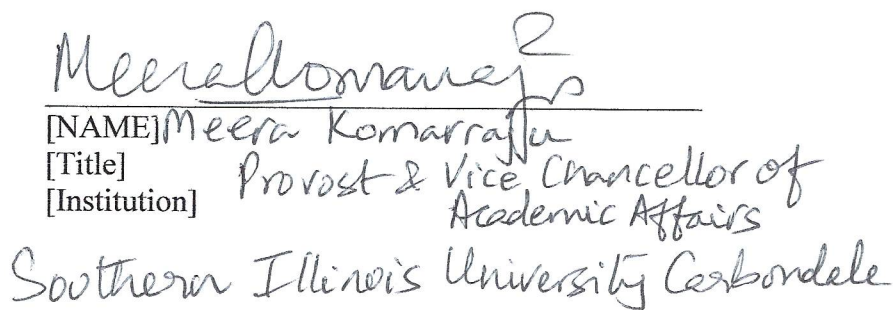 Meera Komarraju
[NAME] Meera Komarraju
[Title] Provost & Vice Chancellor of
[Institution] Academic Affairs
Southern Illinois University Carbondale